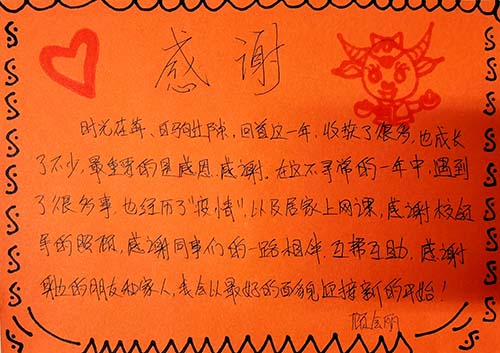 感谢
时光荏苒、白驹过隙,回首这一年,收获了很多,也成长
了不少,最重要的是感恩、感谢。在这不寻常的一年中,遇到
了很多事,也经历了"疫情",以及居家上网课,感谢校领
导的照顾,感谢同事们的一路相伴,互帮互助,感谢
身边的朋友和家人,我会以最好的面貌迎接新的开始!